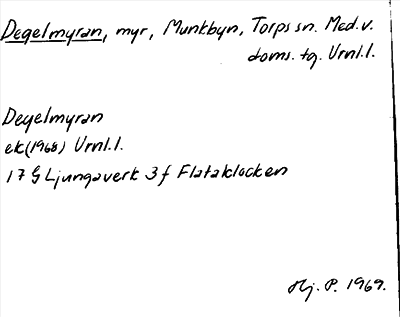 Degelmyran, myr, Munkbyn, Torps sn. Med.v.
doms. tg. Vrnl.l.
Degelmyran
ek(1968) Vrnl.l.
17 G Ljungaverk 3 f Flataklocken
Hj. P. 1969.